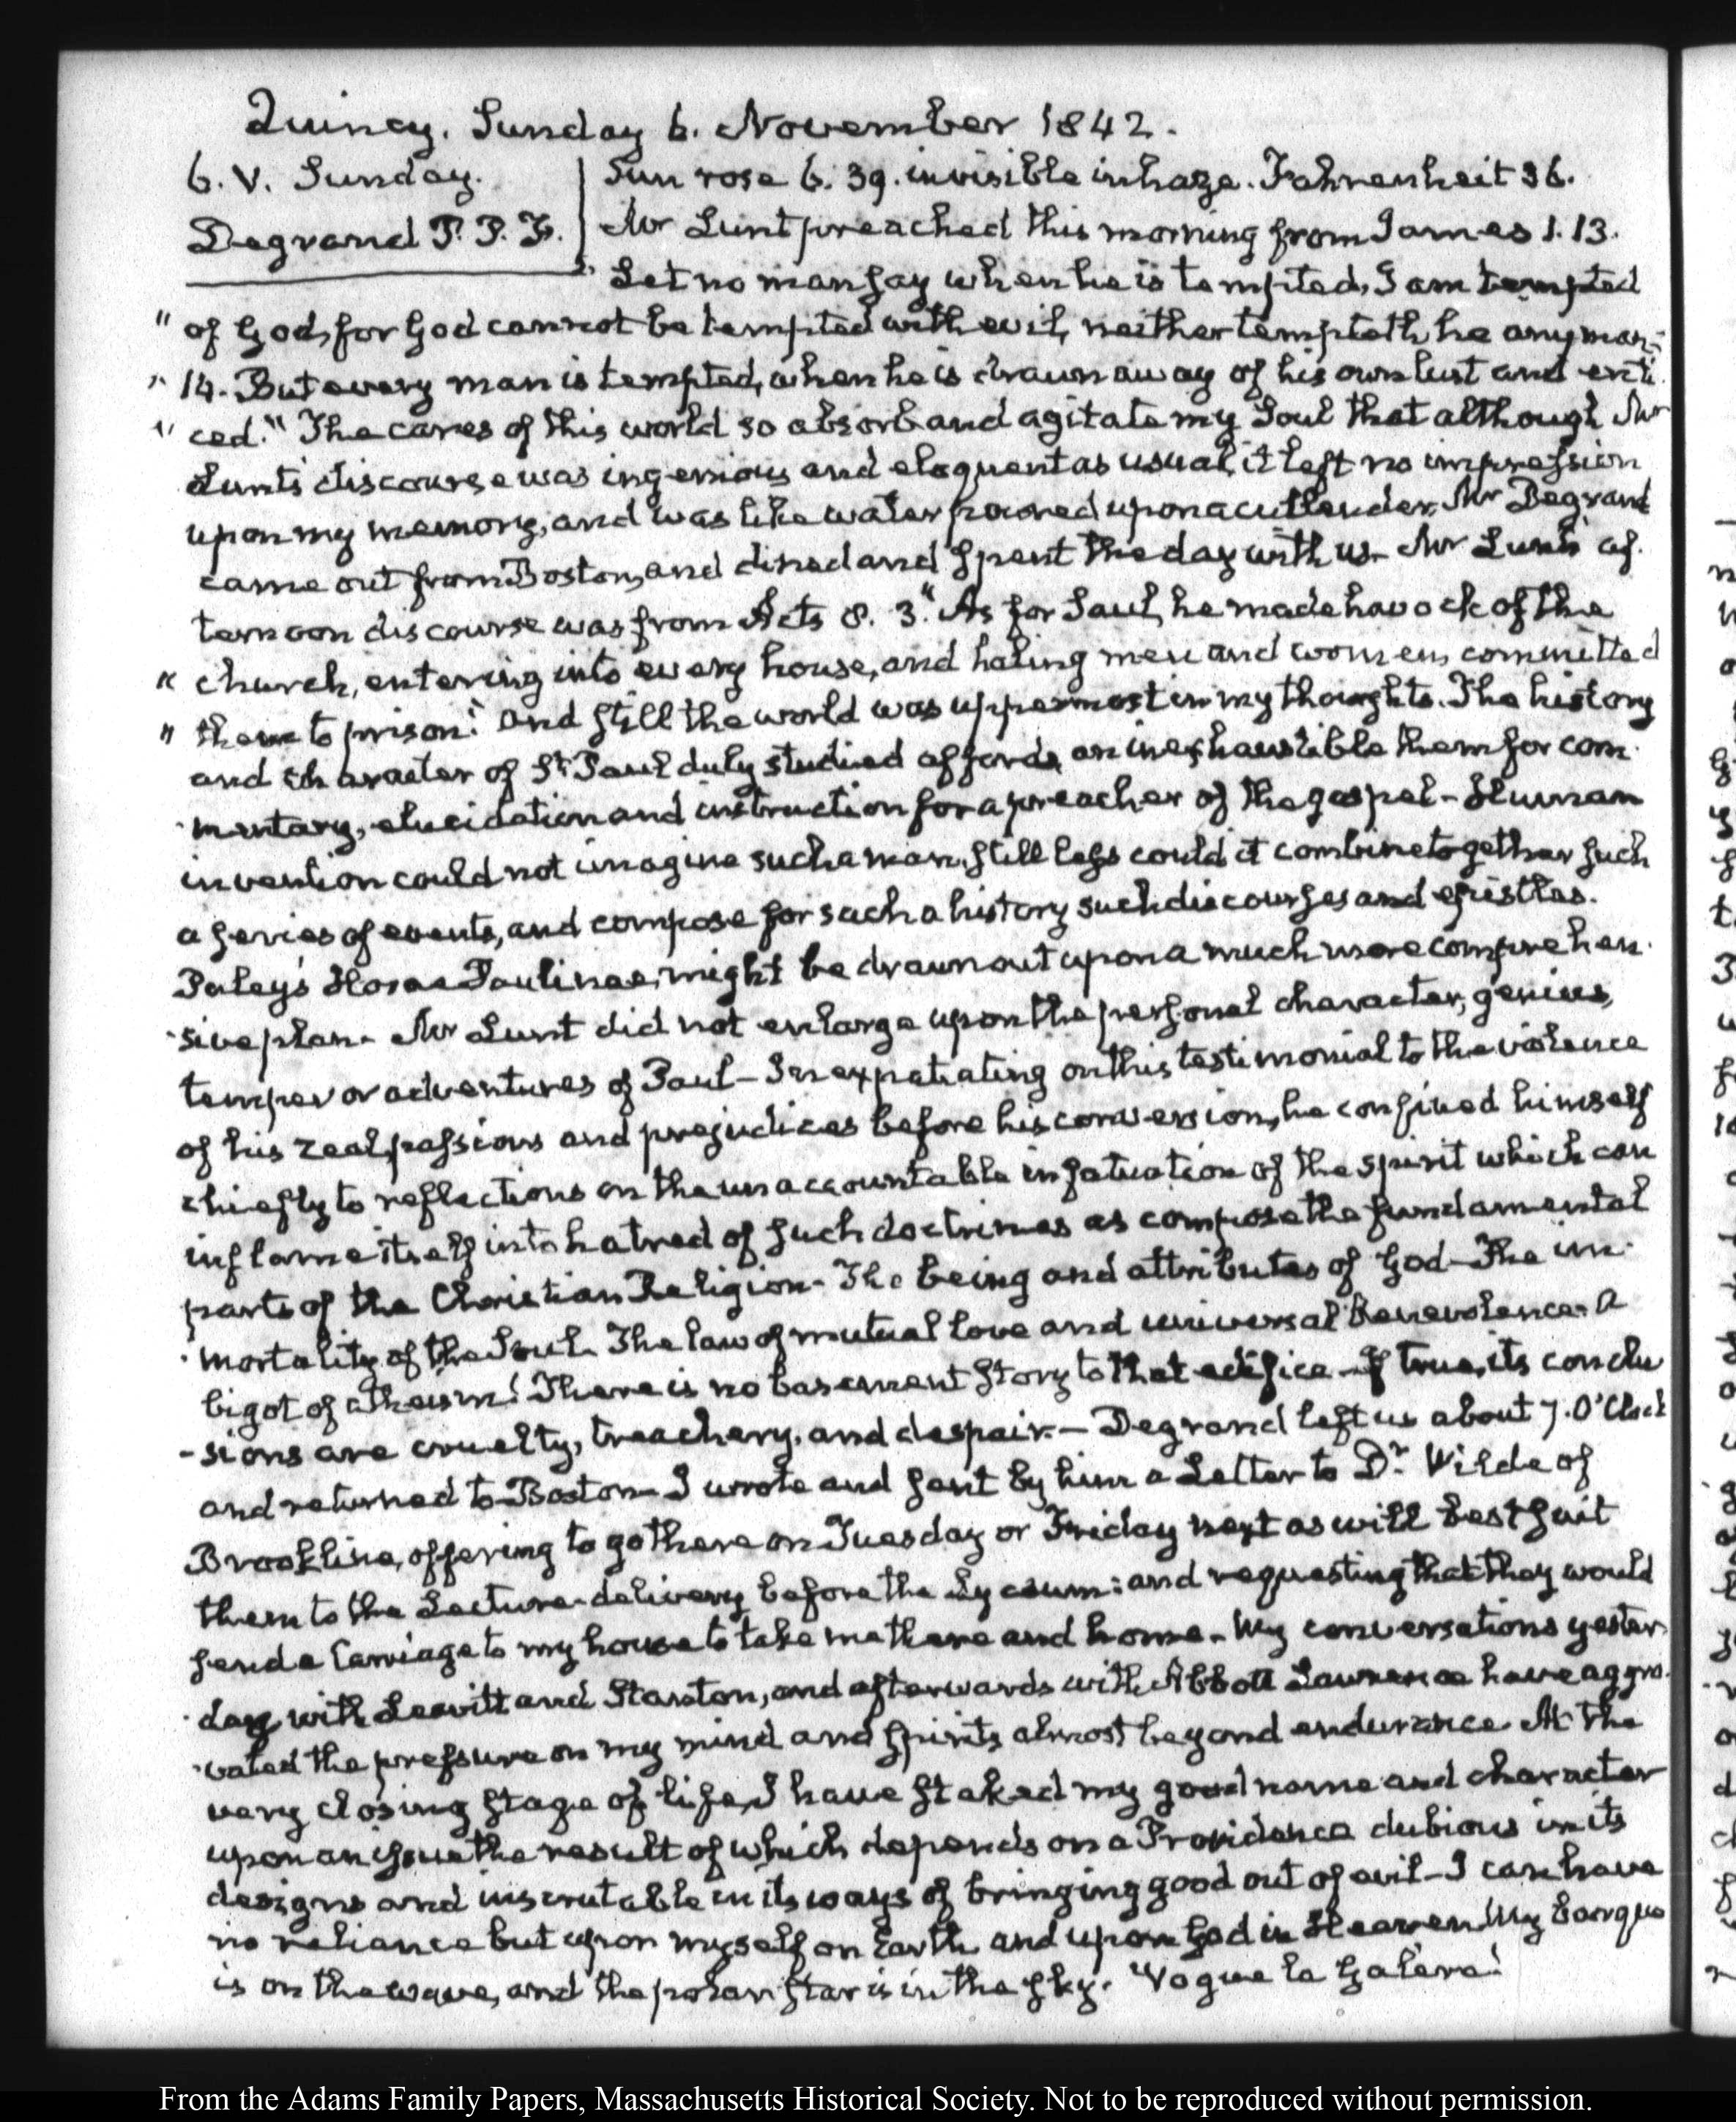 Quincy. Sunday 6. November 1842.
6. V. Sunday.
Degrand P. P. F.
Sun rose 6. 39. invisible in haze. Fahrenheit 36.
Mr Lunt preached this morning from James 1. 13.
Let no man say when he is tempted, I am tempted
" of God, for God cannot be tempted with evil, neither tempteth he any man;
" 14. But every man is tempted, when he is drawn away of his own lust and enti
" ced." The cares of this world so absorb and agitate my Soul that although Mr
Lunt's discourse was ingenious and eloquent as usual, it left no impression
upon my memory, and was like water poured upon a cullender. Mr Degrand
came out from Boston, and dined and spent the day with us. Mr Lunt's af-
ternoon discourse was from Acts 8. 3. "As for Saul, he made havock of the
" church, entering into every house, and haling men and women, committed
" them to prison." And still the world was uppermost in my thoughts. The history
and character of St Paul duly studied affords, an inexhaustible them for com-
-mentary, elucidation and instruction for a preacher of the gospel - Human
invention could not imagine such a man, still less could it combine together such
a series of events, and compose for such a history such discourses and epistles.
Paley's Horae Paulinae, might be drawn out upon a much more comprehen-
-sive plan - Mr Lunt did not enlarge upon the personal character, genius,
temper or adventures of Paul - In expatiating on this testimonial to the violence
of his zeal, passions and prejudices before his conversion, he confined himself
chiefly to reflections on the unaccountable infatuation of the spirit which can
inflame itself into hatred of such doctrines as compose the fundamental
parts of the Christian Religion - The being and attributes of God - The im-
-mortality of the Soul - The law of mutual love and universal Benevolence. A
bigot of atheism! There is no basement story to that edifice - If true, its conclu
-sions are cruelty, treachery, and despair. - Degrand left us about 7. O'Clock
and returned to Boston - I wrote and sent by him a Letter to Dr Wilde of
Brookline, offering to go there on Tuesday or Friday next as will best suit
them to the Lecture-delivery before the Lyceum: and requesting that they would
send a Carriage to my house to take me there and home - My conversations yester-
-day with Leavitt and Stanton, and afterwards with Abbott Lawrence have aggra-
-vated the pressure on my mind and spirits, almost beyond endurance. At the
very closing stage of life, I have staked my good name and character
upon an issue the result of which depends on a Providence dubious in its
designs and inscrutable in its ways of bringing good out of evil - I can have
no reliance but upon myself on Earth and upon God in Heaven. My barque
is on the wave, and the polar star is in the sky. Vogue la Galère!
From the Adams Family Papers, Massachusetts Historical Society. Not to be reproduced without permission.